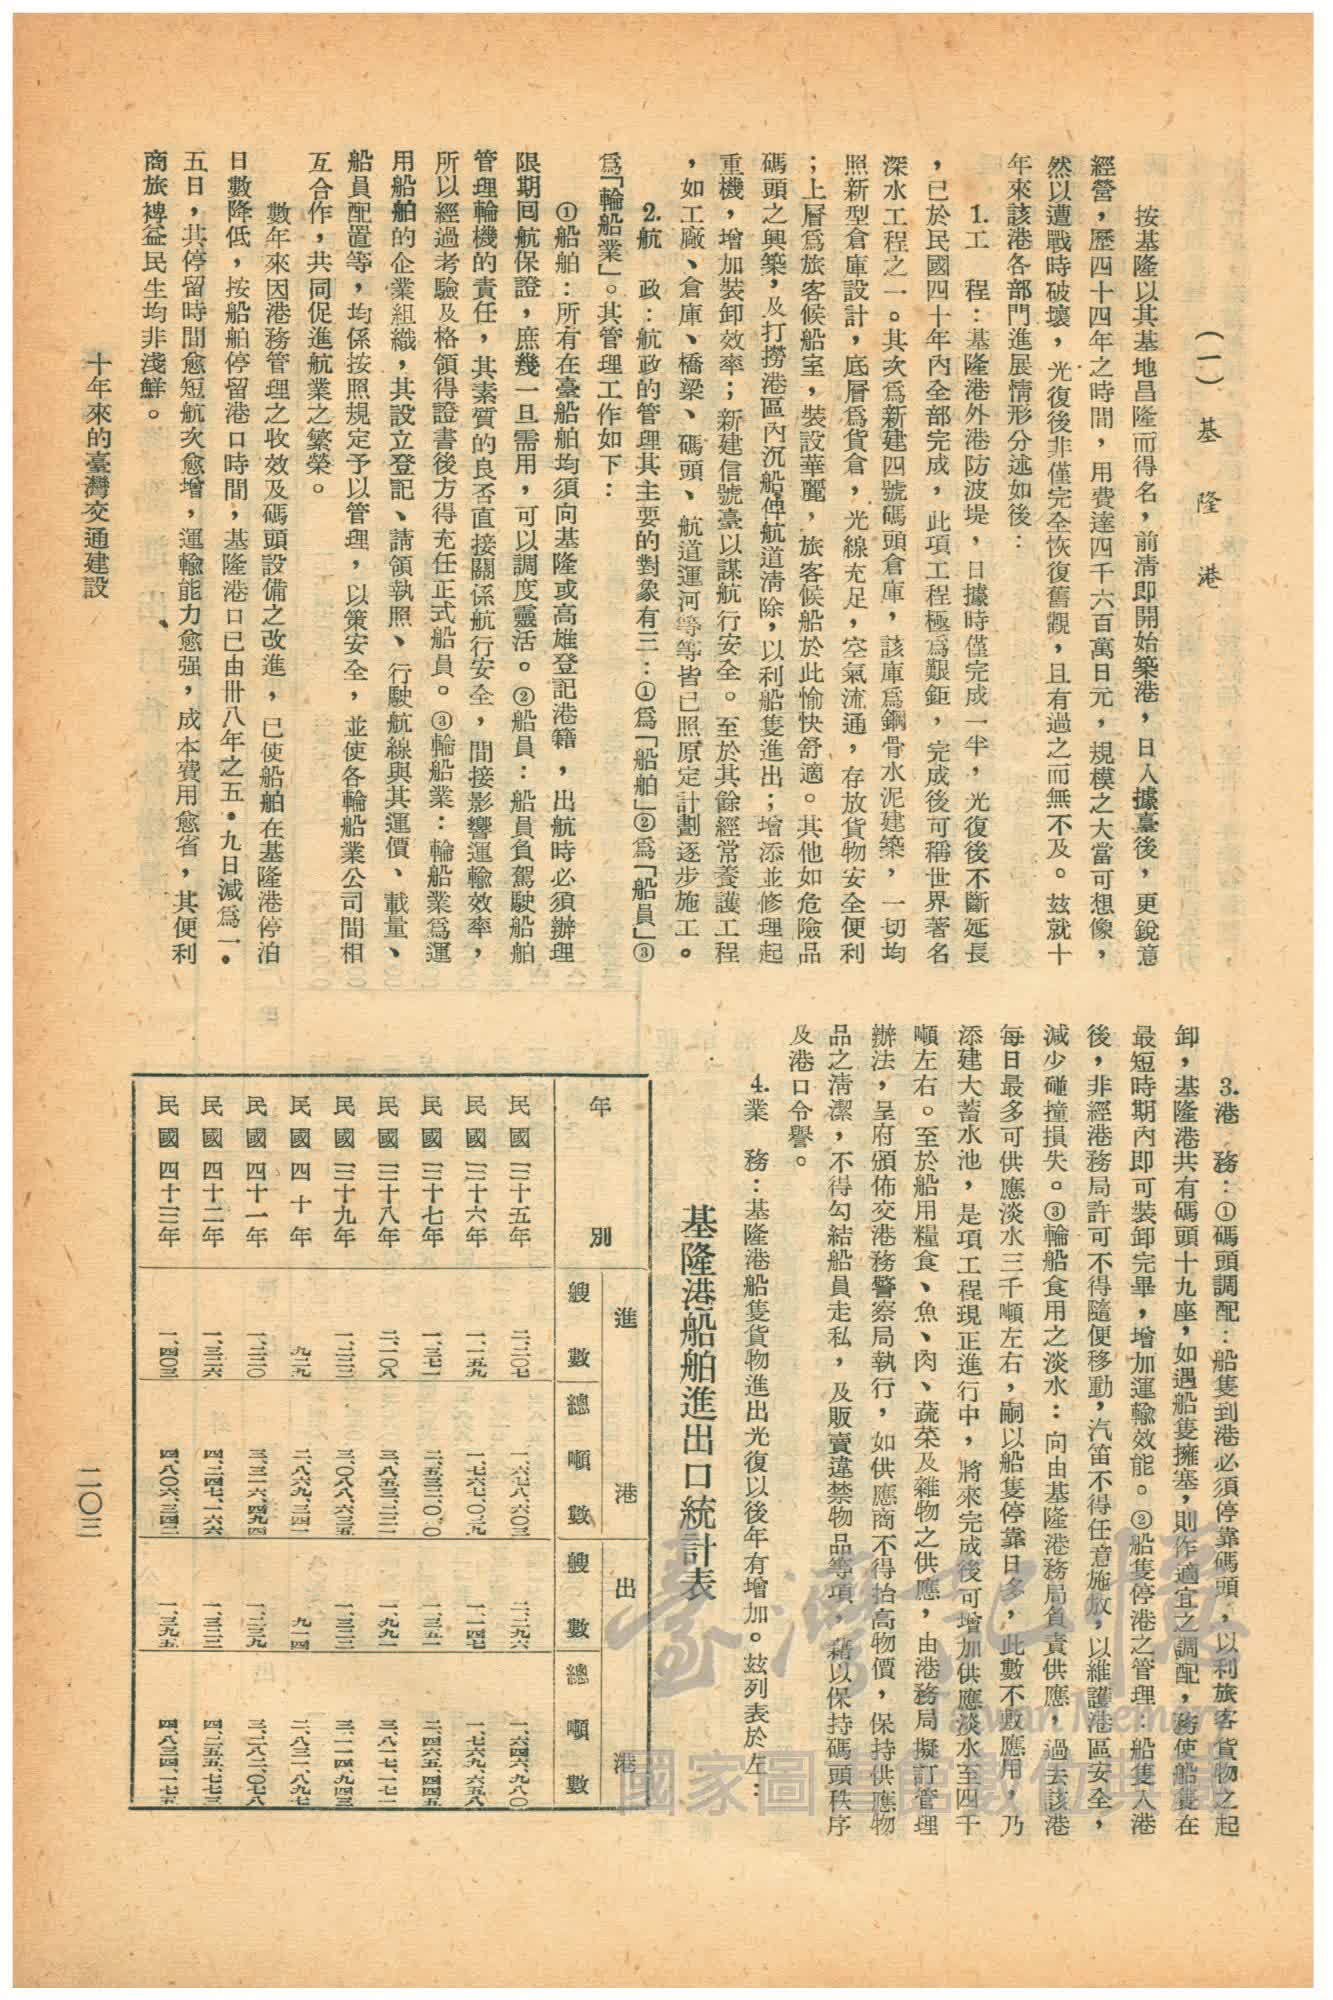 (一) 基隆港
按基隆以其基地昌隆而得名，前清即開始築港，日人據臺後，更銳意
經營，歷四十四年之時間，用費達四千六百萬日元，規模之大當可想像，
然以遭戰時破壞，光復後非僅完全恢復舊觀，且有過之而無不及。玆就十
年來該港各部門進展情形分述如後：
1.工　程：基隆港外港防波堤，日據時僅完成一半，光復後不斷延長
，已於民國四十年內全部完成，此項工程極爲艱鉅，完成後可稱世界著名
深水工程之一。其次爲新建四號碼頭倉庫，該庫爲鋼骨水泥建築，一切均
照新型倉庫設計，底層爲貨倉，光線充足，空氣流通，存放貨物安全便利
；上層爲旅客候船室，裝設華麗，旅客候船於此愉快舒適。其他如危險品
碼頭之興築，及打撈港區內沉船俾航道淸除，以利船隻進出；增添並修理起
重機，增加裝卸效率；新建信號臺以謀航行安全。至於其餘經常養護工程
，如工廠、倉庫、橋梁、碼頭、航道運河等等皆已照原定計劃逐步施工。
2.航　政：航政的管理其主要的對象有三：①爲「船舶」②爲「船員」③
爲「輪船業」。其管理工作如下：
①船舶：所有在臺船舶均須向基隆或高雄登記港籍，出航時必須辦理
限期囘航保證，庶幾一旦需用，可以調度靈活。②船員：船員負駕駛船舶
管理輪機的責任，其素質的良否直接關係航行安全，間接影響運輸效率，
所以經過考驗及格領得證書後方得充任正式船員。③輪船業：輪船業爲運
用船舶的企業組織，其設立登記、請領執照、行駛航線與其運價、載量、
船員配置等，均係按照規定予以管理，以策安全，並使各輪船業公司間相
互合作，共同促進航業之繁榮。
數年來因港務管理之收效及碼頭設備之改進，已使船舶在基隆港停泊
日數降低，按船舶停留港口時間，基隆港口已由卅八年之五．九日減爲一．
五日，其停留時間愈短航次愈增，運輸能力愈强，成本費用愈省，其便利
商旅裨益民生均非淺鮮。
十年來的臺灣交通建設
3.港　務：①碼頭調配：船隻到港必須停靠碼頭，以利旅客貨物之起
卸，基隆港共有碼頭十九座，如遇船隻擁塞，則作適宜之調配，務使船隻在
最短時期內即可裝卸完畢，增加運輸效能。②船隻停港之管理：船隻入港
後，非經港務局許可不得隨便移動，汽笛不得任意施放，以維護港區安全，
減少碰撞損失。③輪船食用之淡水：向由基隆港務局負責供應，過去該港
每日最多可供應淡水三千噸左右，嗣以船隻停靠日多，此數不敷應用，乃
添建大蓄水池，是項工程現正進行中，將來完成後可增加供應淡水至四千
噸左右。至於船用糧食、魚、肉、蔬菜及雜物之供應，由港務局擬訂管理
辦法，呈府頒佈交港務警察局執行，如供應商不得抬高物價，保持供應物
品之淸潔，不得勾結船員走私，及販賣違禁物品等項，藉以保持碼頭秩序
及港口令譽。
4.業　務：基隆港船隻貨物進出光復以後年有增加。玆列表於左：
基隆港船舶進出口統計表
年　別　進　港　出　港
艘數　總噸數　艘數　總噸數
民國三十五年　二、二〇七　一、六七八、六〇三　二、二九六　一、六四六、九八〇
民國三十六年　一、一五九　一、七六七、〇二九　一、一四七　一、七六九、六五八
民國三十七年　一、三七一　三五一　二、四六五、四四五
民國三十八年　二、一〇八　三、八五三、二二一　一、九九一　三、八一七、一七一
民國三十九年　一、二三二　三、〇八八、六三五　一、三二二　三、一一四、九四三
民國四十年　九二九　二、八六九、三四一　九一四　二、八三一、八九七
民國四十一年　一、二三〇　三、三一六、四九四　一、二三九　三、二八二、〇七八
民國四十二年　一、三三六　四、二四七、一六六　一、三三三　四、二五五、七七三
民國四十三年　一、四〇三　四、八〇六、三四二　一、三九五　四、八三四、一七五
二〇三
臺灣記憶
Taiwan Memory
國家圖書館數位典藏